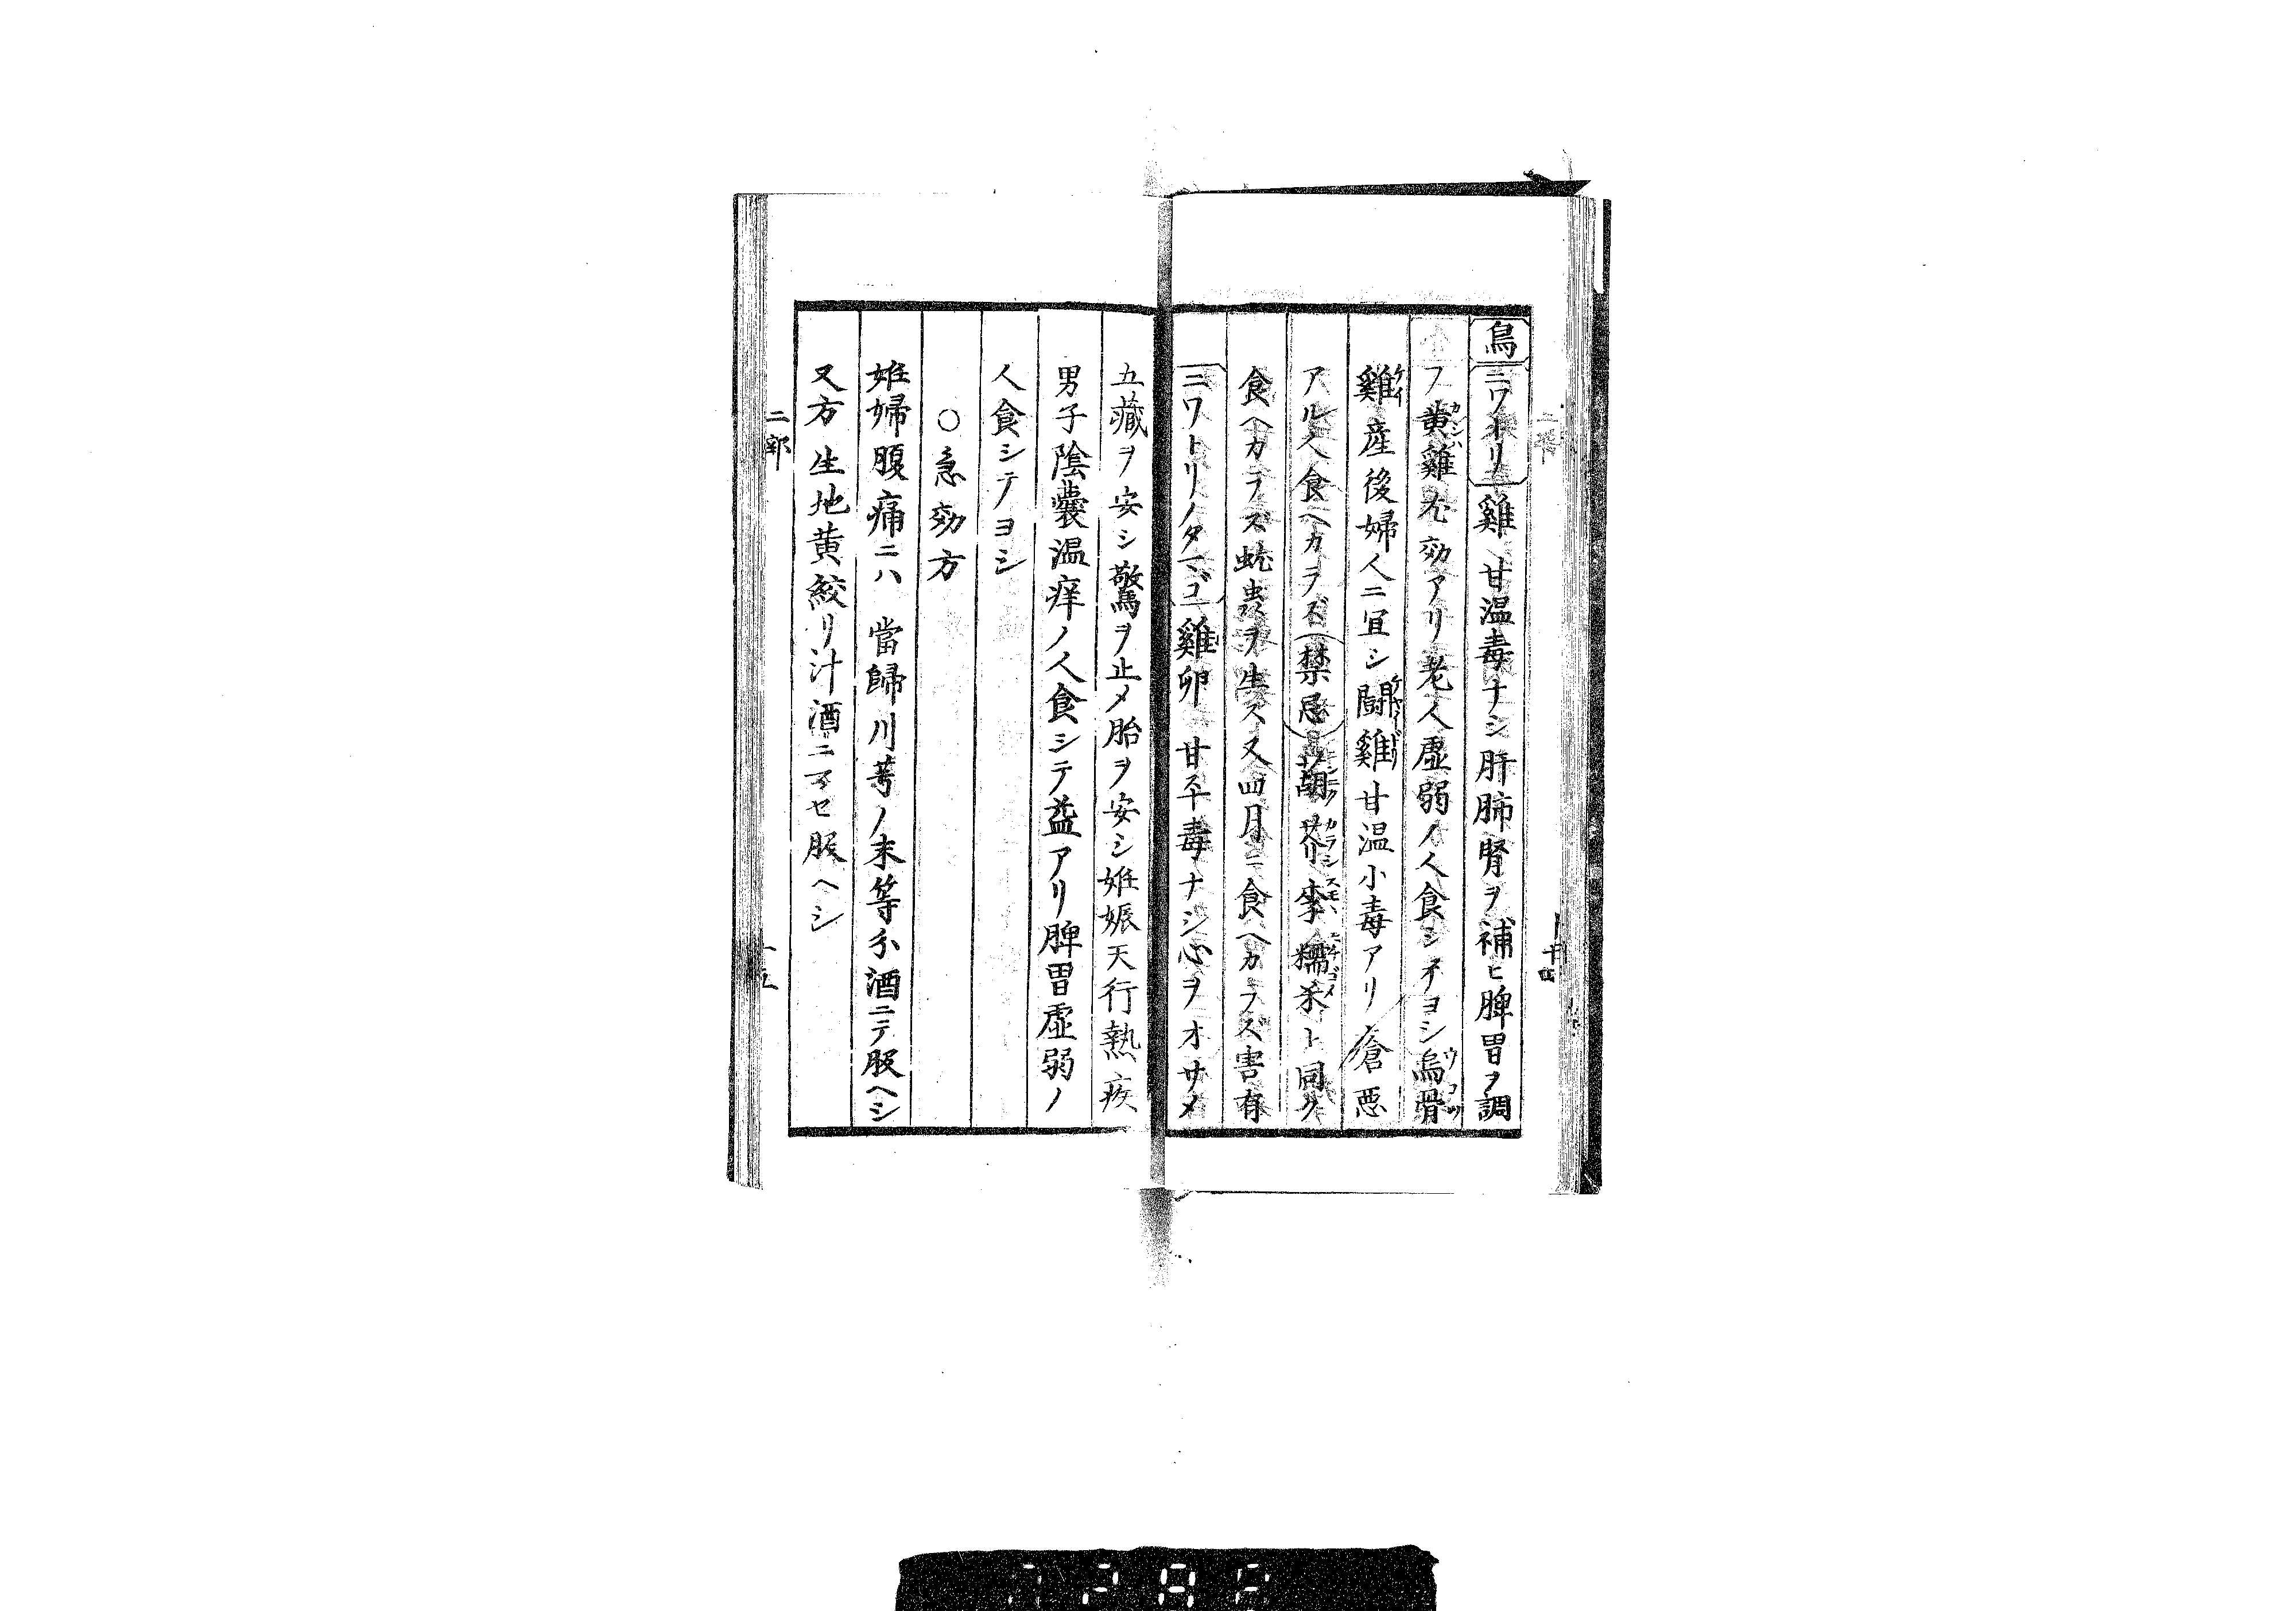 鳥 ニワトリ 雞 甘温毒ナシ肝肺腎ヲ補ヒ脾胃ヲ調
フ黄雞尤効アリ老人虚弱ノ人食シテヨシ烏骨
雞産後婦人ニ宜シ闘雞甘温小毒アリ瘡悪
アル人食ヘカラズ禁忌葫芥李糯米ト同ク
食ヘカラズ蚘虫ヲ生ス又四月ニ食ヘカラズ害有
ニワトリノタマゴ 雞卵 甘平毒ナシ心ヲオサメ
五藏ヲ安シ驚ヲ止メ胎ヲ安シ妊娠天行熱疾
男子陰嚢温痒ノ人食シテ益アリ脾胃虚弱ノ
人食シテヨシ
○急効方
妊婦腹痛ニハ 當歸川芎ノ末等分酒ニテ服ヘシ
又方 生地黄絞リ汁酒ニマセ服ヘシ
二部